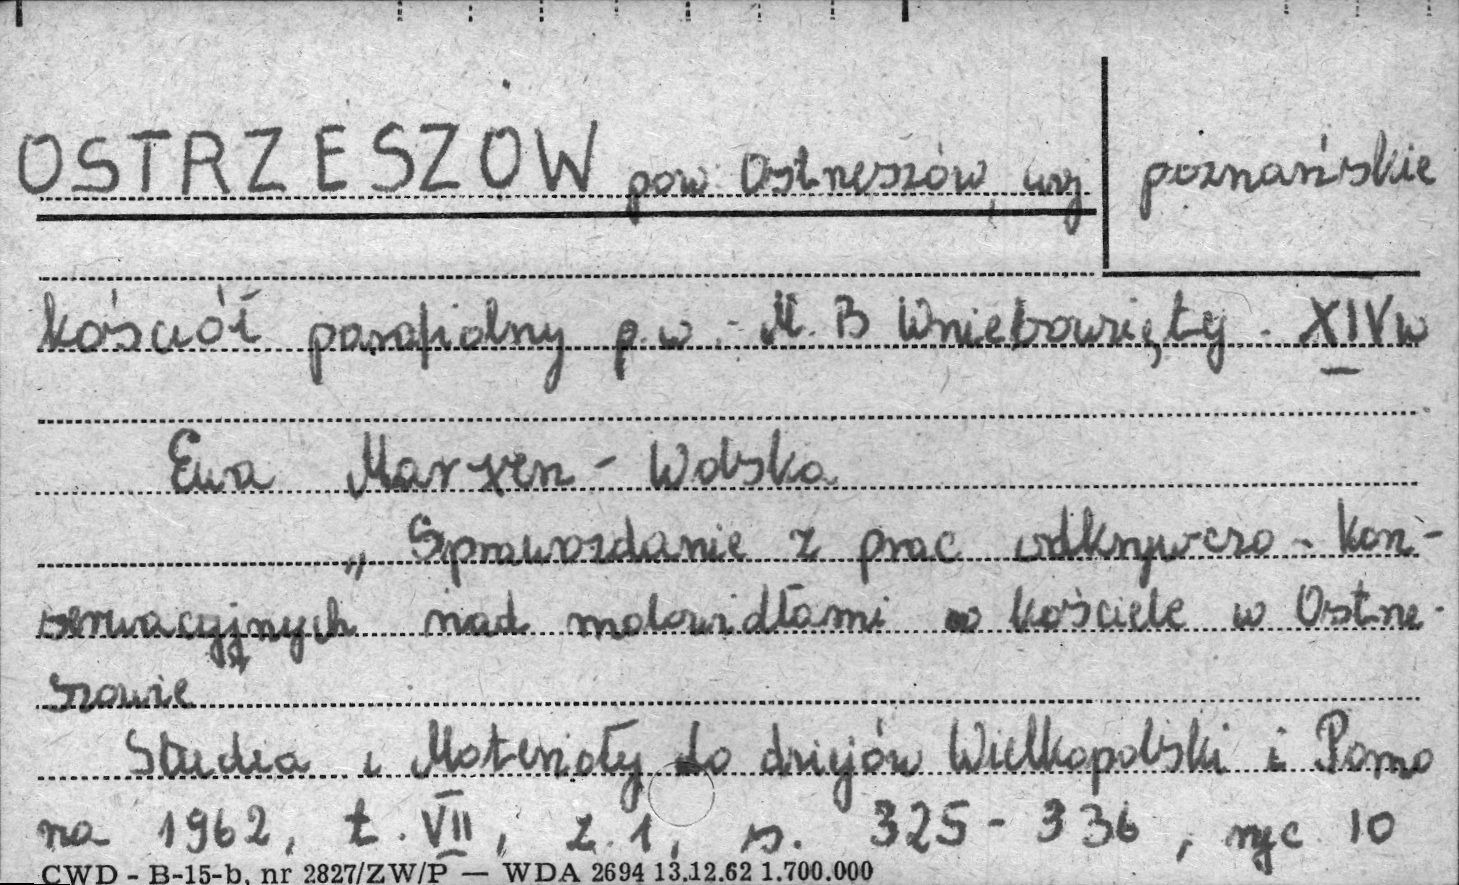 OSTRZESZÓW pow Ostrzeszów, woj poznańskie
kościół parafialny p.w. M. B Wniebowzięty. XIV w
Ewa Marxen-Wolska
„Sprawozdanie z prac odkrywczo-kon-
serwacyjnych nad malowidłami w kościele w Ostrze-
szowie
Studia i Materiały do dziejów Wielkopolski i Pomo
rza 1962, t. VII, z. 1, s. 325-336, ryc 10
CWD - B-15-b, nr 2827/ZW/P — WDA 2694 13.12.62 1.700.000